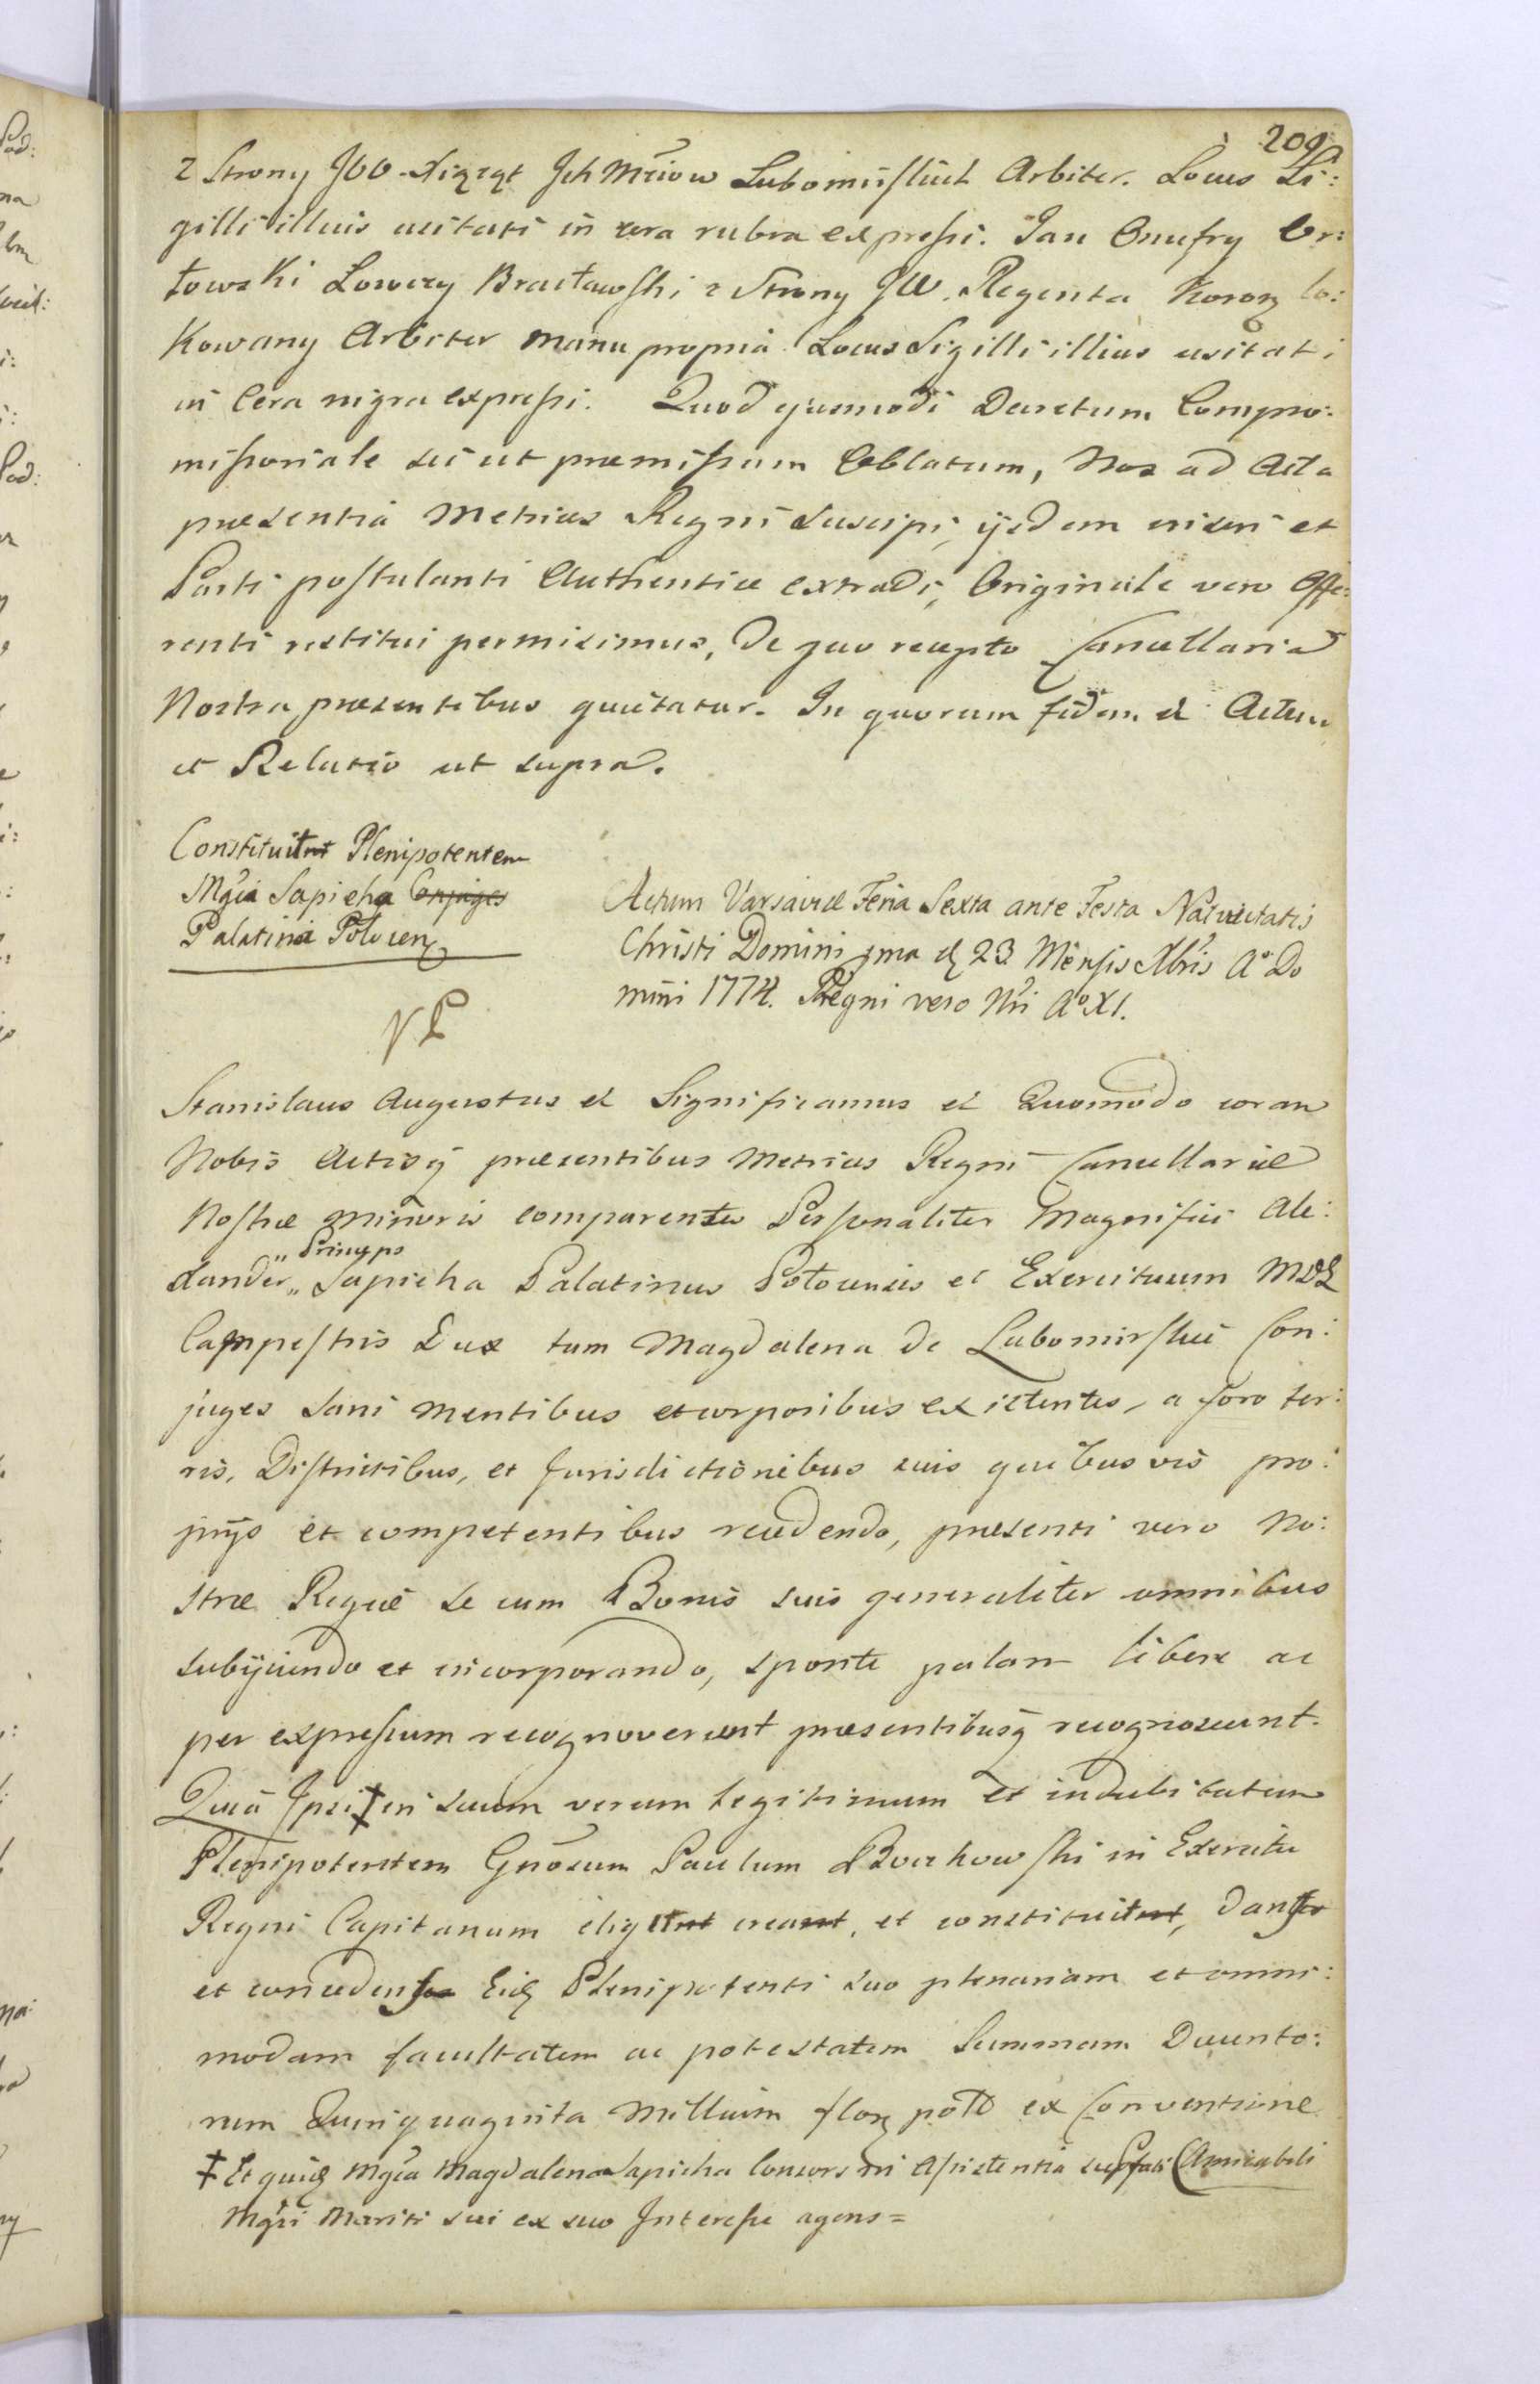 209
z Strony JOO Xiążąt Jch Mciow Lubomirskich Arbiter. Locus Si:
gilli illius usitati in cera rubra expressi. Jan Onufry Or:
łowski Łowczy Bracławski z Strony JW. Regenta Koron lo:
kowany Arbiter manu propria Locus Sigilli illius usitati
in Cera nigra expressi. Quod ejusmodi Decretum Compro:
missoriale sicut praemissum Oblatum, Nos ad Acta
praesentia Metrices Regni suscipi, ijsdem inseri et
Parti postulanti Authentice extradi, Originale vero Offe:
renti restitui permisimus, de quo recepto Cancellaria
Nostra praesentibus quietatur. In quorum fidem et Actum
et Relatio ut supra.
Constituitnt Plenipotentem
Mgca Sapieha Conjuges
Palatina Polocen
Actum Varsaviae Feria Sexta ante Festa Nativitatis
Christi Domini pma d 23 Mensis Xbris Ao Do
mini 1774. Regni vero Nri Ao XI.
VP
Stanislaus Augustus et Significamus et Quomodo coram
Nobis Actisq praesentibus Metrices Regni Cancellariae
Nostrae Minoris comparentes Personaliter Magnifici Ale:
Princeps
xander „ Sapieha Palatinus Polocensis et Exercituum MDL
Campestris Dux tum Magdalena de Lubomirskie Con:
juges sani mentibus et corporibus existentes, a foro ter:
ris, Districtibus, et Jurisdictionibus suis quibusvis pro:
prijs et competentibus recedendo, praesenti vero No:
strae Regiae se cum Bonis suis generaliter omnibus
subijciendo et incorporando, sponte palam libere ac
per expressum recognoverunt praesentibusq recognoscunt.
Quia Ipsi ‡ en suum verum legitimum et indubitatum
Plenipotentem Gnosum Paulum Bochowski in Exercitu
Regni Capitaneum eligitnt creant, et constituitnt, dantes
et concedentes Eid Plenipotenti suo plenariam et omni:
modam facultatem ac potestatem Summam Ducento:
rum Quinquaginta Millium flor pold ex Conventione
‡ Et quid Mgca Magdalena Sapieha Consors in Assistentia supfati Amicabili
Mgci Mariti sui ex suo Interesse agens=